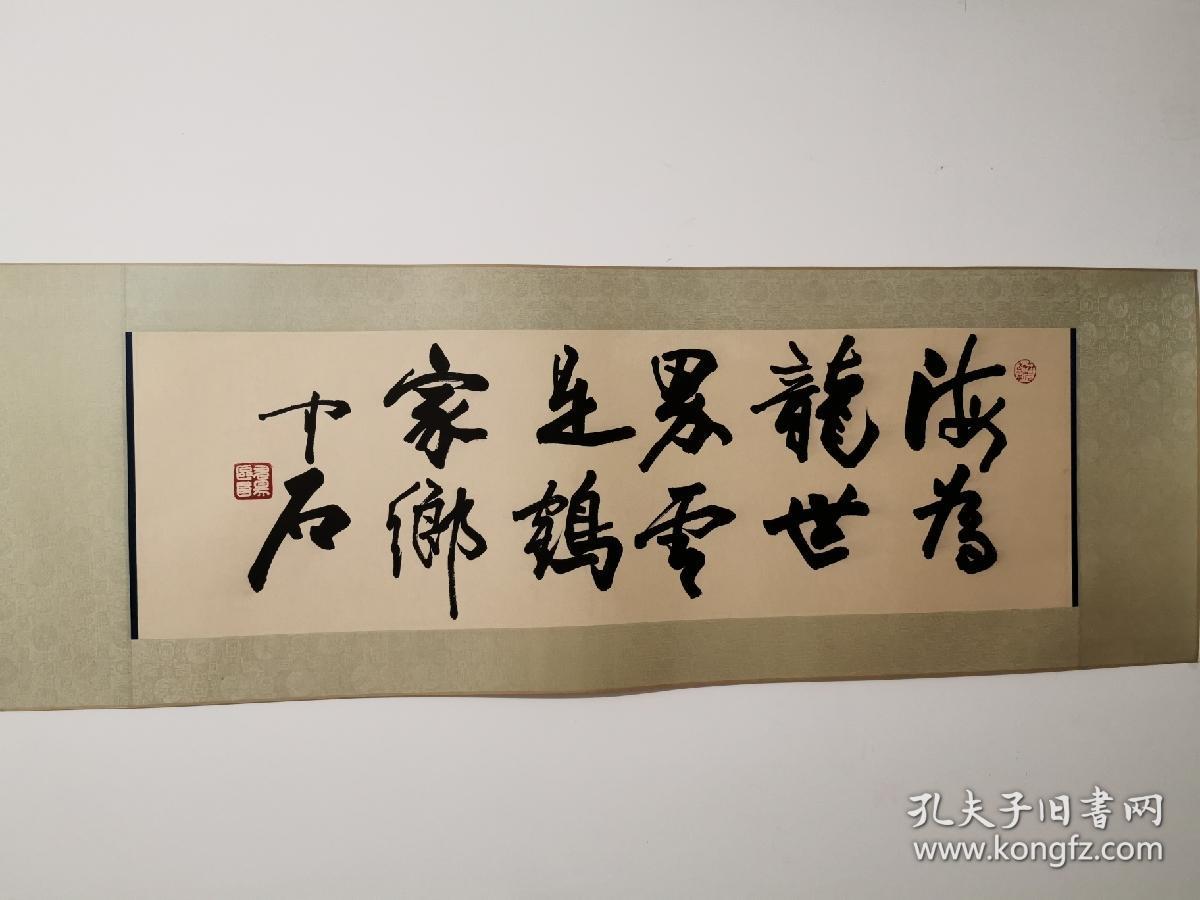 海為
龍世
界雲
是鶴
家鄉
中石
孔夫子旧書网
www.kongfz.com